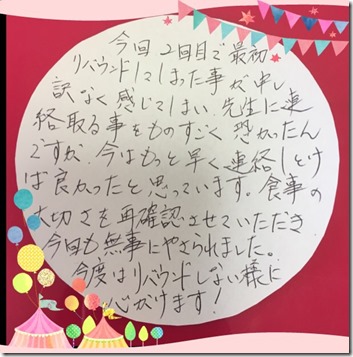 今回2回目で最初
リバウンドしてしまった事が申し
訳なく感じてしまい、先生に連
絡取る事をものすごく恐かったん
ですが、今はもっと早く連絡しとけ
ば良かったと思っています。食事の
大切さを再確認させていただき
今回も無事にやせられました。
今度はリバウンドしない様に
心がけます!